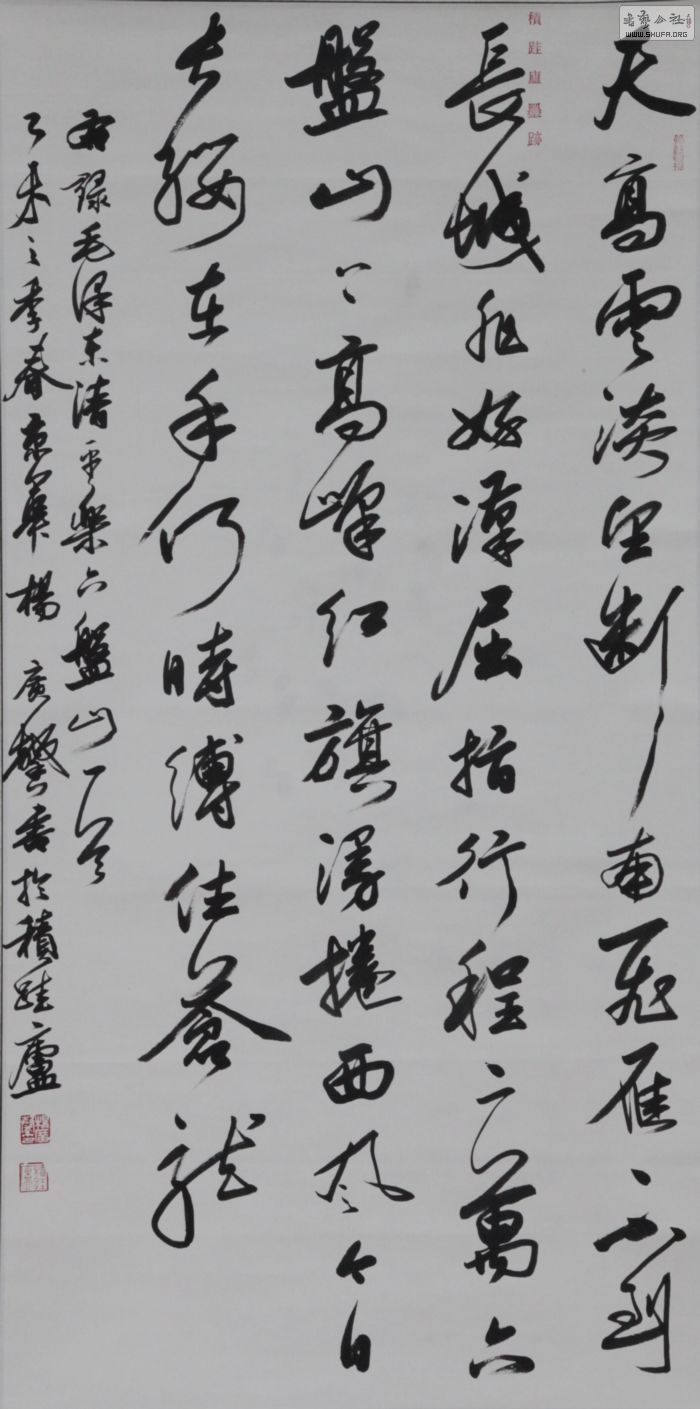 天高雲淡望斷南飛雁不到
長城非好漢屈指行程二萬六
盤山上高峰紅旗漫捲西風今日
長纓在手何時縛住蒼龍
右錄毛澤東清平樂六盤山一首
乙未之季春京華楊廣馨書於積跬廬
積跬廬墨跡
書藝公社
WWW.SHUFA.ORG